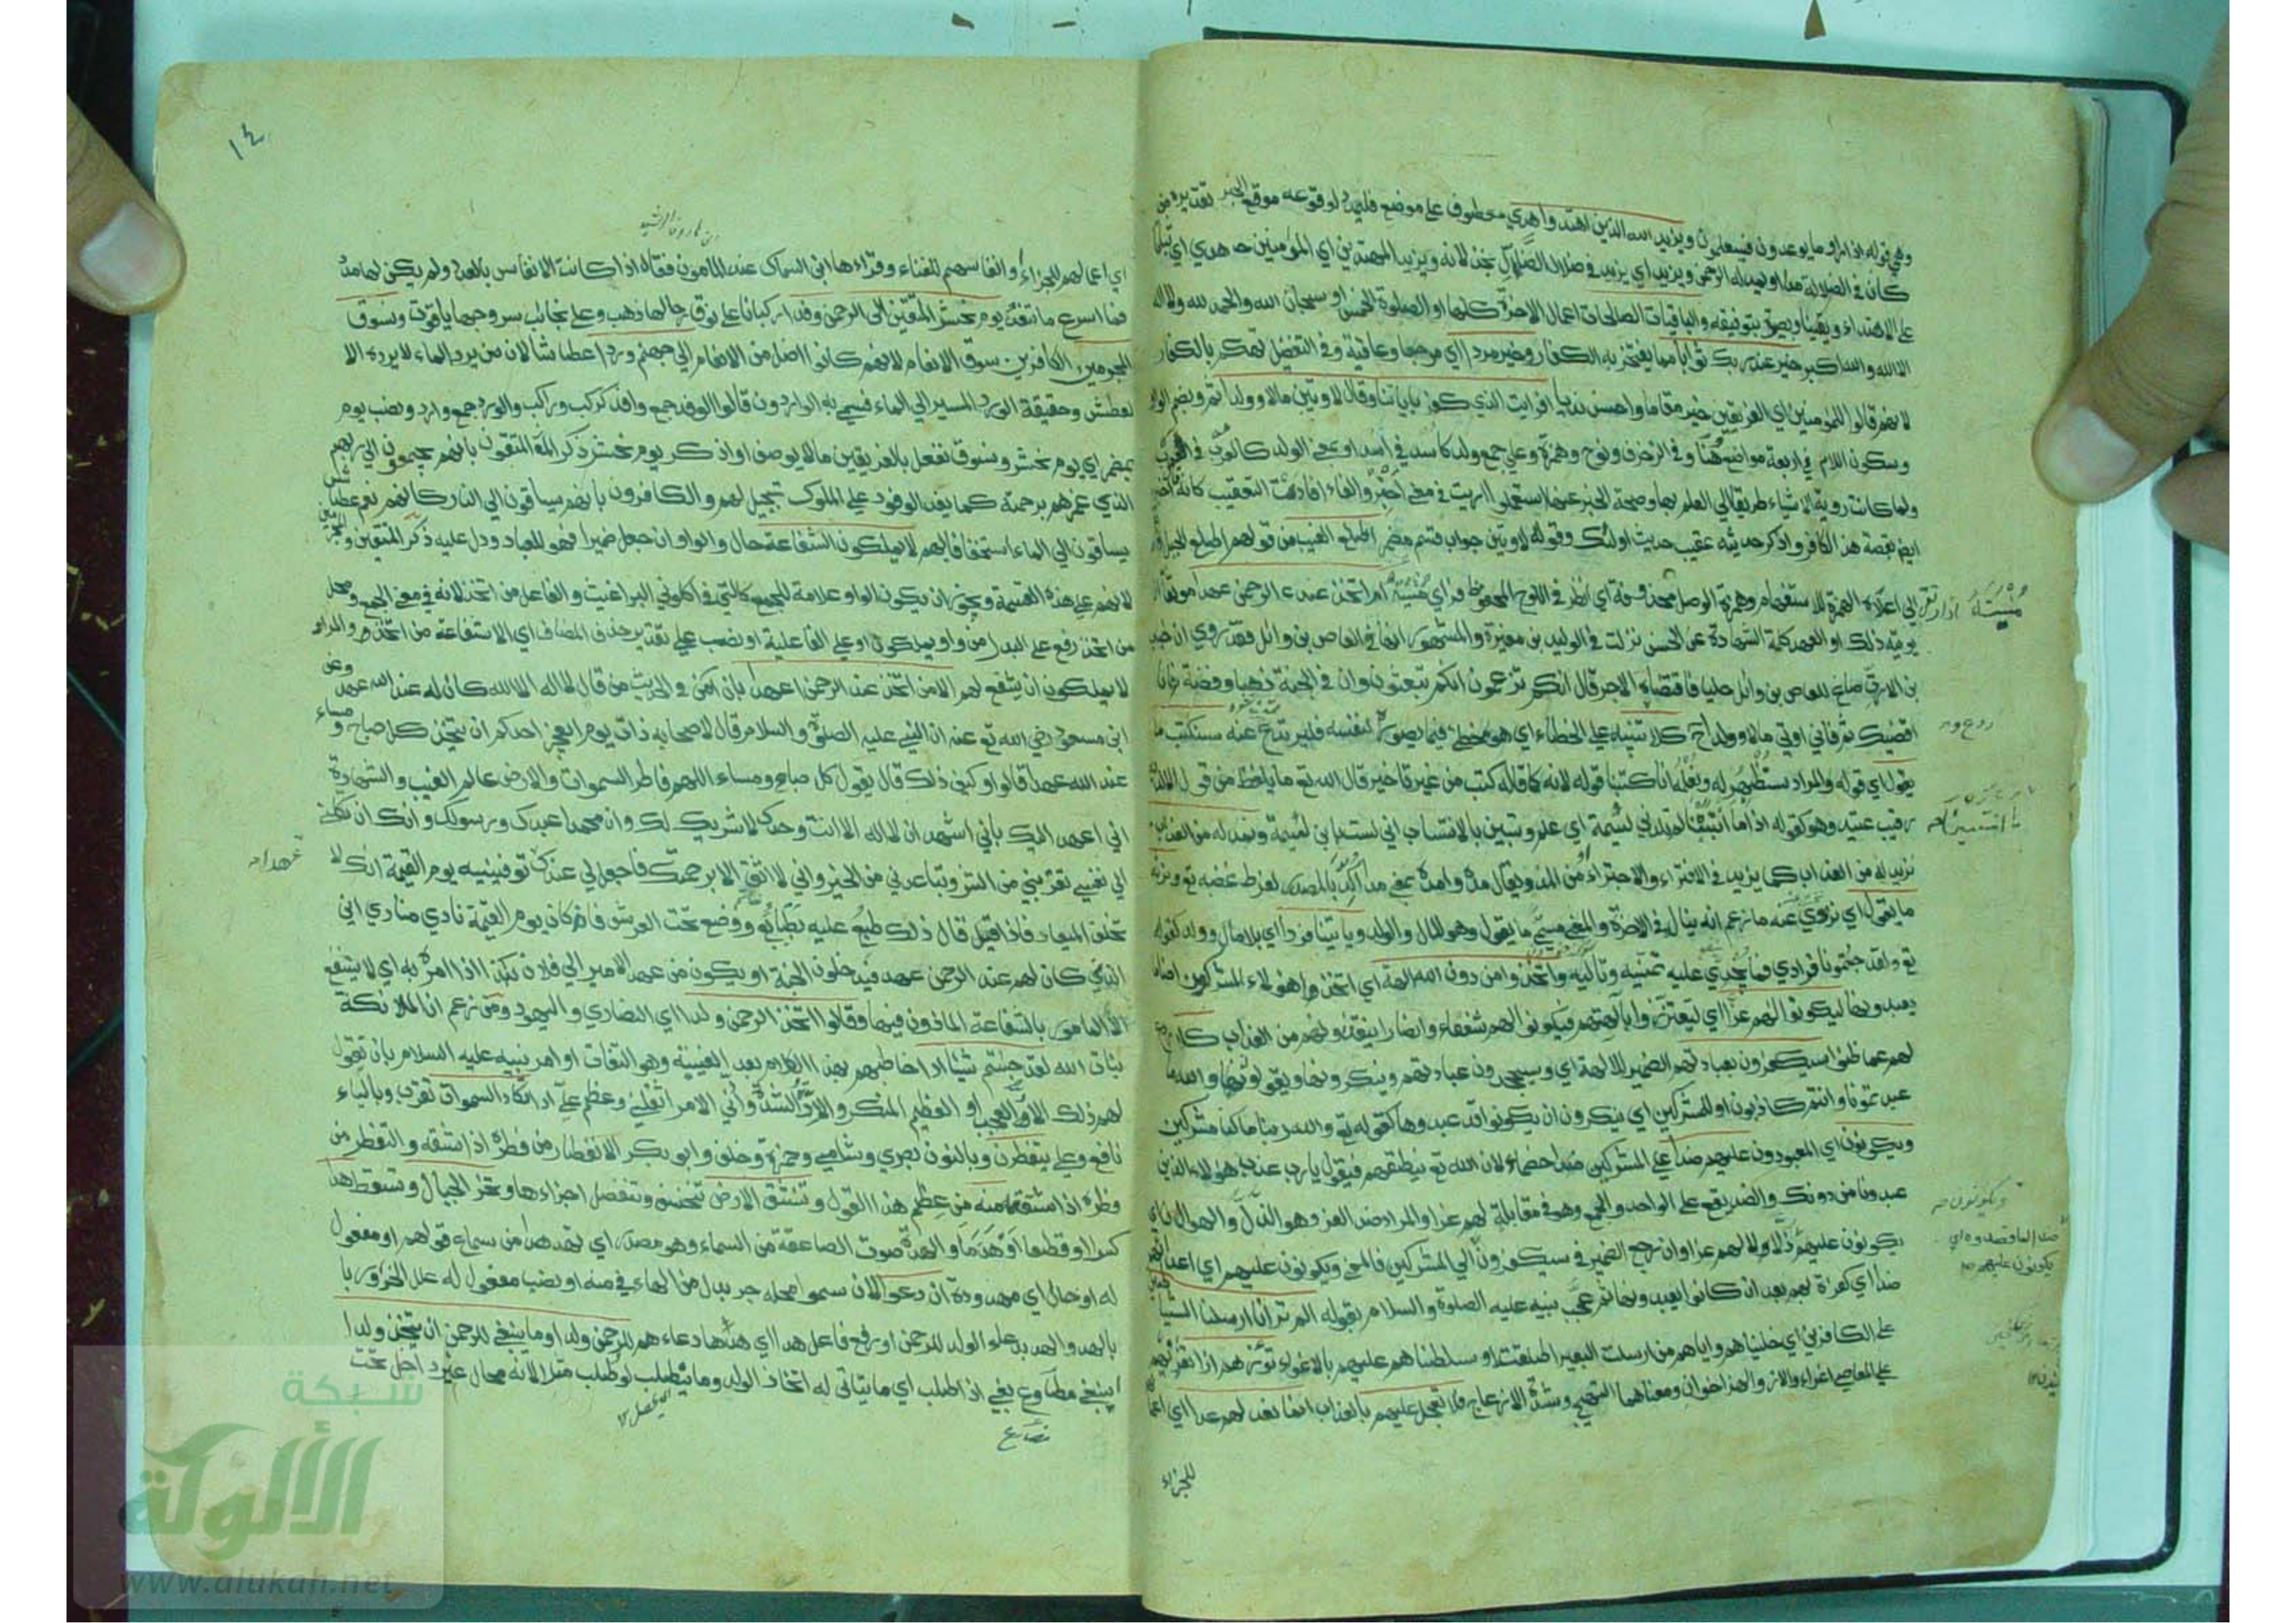 وهي قوله اذا راوا ما يوعدون فسيعلمون ويزيد الله الذين اهتدوا هدي معطوف علي موضع فليمدد لوقوعه موقع الخبر تقديره من
كان في الضلالة مدا او يمد له الرحمن ويزيد اي يزيد في ضلال الضلال بخذلانه ويزيد المهتدين اي المؤمنين هدي اي ثباتا
علي الاهتداء ويقينا وبصيرة بتوفيقه والباقيات الصالحات اعمال الاخرة كلها او الصلوة الخمس او سبحان الله والحمد لله ولا اله
الا الله والله اكبر خير عند ربك ثوابا مما يفتخر به الكفار وخير مردا اي مرجعا وعاقبة وفي التفضيل تهكم بالكفار
لانهم قالوا للمؤمنين اي الفريقين خير مقاما واحسن نديا افرايت الذي كفر باياتنا وقال لاوتين مالا وولدا ثم وبضم الواو
وسكون اللام في اربعة مواضع ههنا وفي الزخرف ونوح وحمزة وعلي جمع ولد كاسد في اسد او بمعني الولد كالعرب في العرب
ولما كانت روية الاشياء طريقا الي العلم بها وصحة الخبر عنها استعملوا ارايت في معني اخبر والفاء افادت التعقيب كانه قال اخبر
ايضا بقصة هذا الكافر واذكر حديثه عقيب حديث اولئك وقوله لاوتين جواب قسم مضمر اطلع الغيب من قولهم اطلع الجبل اذا
ارتقي الي اعلاه الهمزة للاستفهام وهمزة الوصل محذوفة اي انظر في اللوح المحفوظ فراي منيته ام اتخذ عند الرحمن عهدا موثقا ان
يوتيه ذلك او العهد كلمة الشهادة عن الحسن نزلت في الوليد بن مغيرة والمشهور انها في العاص بن وائل فقد روي ان خباب
بن الارت صاغ للعاص بن وائل حليا فاقتضاه الاجر قال انكم تزعمون انكم تبعثون وان في الجنة ذهبا وفضة فانا
اقضيك ثم فاني اوتي مالا وولدا ح كلا تنبيه علي الخطاء اي هو مخطئ فيما يصوره لنفسه فليرتدع عنه سنكتب ما
يقول اي قوله والمراد سنظهر له ونعلمه انا كتبنا قوله لانه كما قاله كتب من غير تاخير قال الله تع ما يلفظ من قول الا لديه
رقيب عتيد وهو كقوله اذا ما انتسبنا لم تلدني لئيمة اي علم وتبين بالانتساب اني لست بابن لئيمة ونمد له من العذاب
نزيده من العذاب كما يزيد في الافتراء والاجتراء من المدد ويقال مده وامده بمعني مدا اكد بالمصدر لفرط غضبه تع ونرثه
ما يقول اي نزوي عنه ما زعم انه ينال في الاخرة والمعني مسمي ما يقول وهو المال والولد وياتينا فردا اي بلا مال وولد كقوله
تع ولقد جئتمونا فرادي فما يجدي عليه تمنيه وتاليه واتخذوا من دون الله الهة اي اتخذوا هؤلاء المشركون اصناما
يعبدونها ليكونوا لهم عزا اي ليعتززوا بآلهتهم فيكونوا لهم شفعاء وانصارا ينقذونهم من العذاب كلا ردع
لهم عما ظنوا سيكفرون بعبادتهم الضمير للالهة اي وسيجحدون عبادتهم وينكرونها ويقولون والله ما
عبدتمونا وانتم كاذبون او للمشركين اي ينكرون ان يكونوا قد عبدوها كقوله تع والله ربنا ما كنا مشركين
ويكونون اي المعبودون عليهم ضدا علي المشركين ضدا خصماء لان الله تع ينطقهم فيقول يا رب عذب هؤلاء الذين
عبدونا من دونك والضد يقع علي الواحد والجمع وهو في مقابلة لهم عزا والمراد ضد العز وهو الذل والهوان اي
يكونون عليهم ذلا لا لهم عزا وان رجع الضمير في سيكفرون الي المشركين فالمعني ويكونون عليهم اي اعدائهم
ضدا اي كفرة بهم بعد ان كانوا يعبدونها ثم عجب نبيه عليه الصلوة والسلام بقوله الم تر انا ارسلنا الشياطين
علي الكافرين اي خليناهم واياهم من ارسلت البعير اطلقته او سلطناهم عليهم بالاغواء تؤزهم ازا تغريهم
علي المعاصي اغراء والاز والهز اخوان ومعناهما التهييج وشدة الازعاج فلا تعجل عليهم بالعذاب انما نعد لهم عدا اي اعمالهم
للجزاء
ضد الما قصدوه اي
يكونون عليهم
١٤
بن هارون الرشيد
اي اعمالهم للجزاء وانفاسهم للفناء وقراءها ابن السماك عند المامون فقال اذا كانت الانفاس بالعدد ولم يكن لها مدد
فما اسرع ما تنفد يوم نحشر المتقين الي الرحمن وفدا ركبانا علي نوق رحالها ذهب وعلي نجائب سروجها ياقوت ونسوق
المجرمين الكافرين سوق الانعام لانهم كانوا اضل من الانعام الي جهنم وردا عطاشا لان من يرد الماء لا يرده الا
لعطش وحقيقة الورد المسير الي الماء فيسمي به الواردون قالوا الوفد جمع وافد كركب وراكب والورد جمع وارد ونصب يوم
بمضمر اي يوم نحشر ونسوق نفعل بالفريقين مالا يوصف او اذكر يوم نحشر ذكر المتقون بانهم يجمعون الي ربهم
الذي غمرهم برحمته كما يفد الوفود علي الملوك تبجيلا لهم والكافرون بانهم يساقون الي النار كانهم نعم عطاش
يساقون الي الماء استخفافا بهم لا يملكون الشفاعة حال والواو ان جعل ضميرا فهو للعباد ودل عليه ذكر المتقين والمجرمين
لانهم علي هذه القسمة ويجوز ان يكون الواو علامة للجمع كالتي في اكلوني البراغيث والفاعل من اتخذ لانه في معني الجمع ومحل
من اتخذ رفع علي البدل من واو يملكون او علي الفاعلية او نصب علي تقدير حذف المضاف اي الا شفاعة من اتخذ والمراد
لا يملكون ان يشفع لهم الا من اتخذ عند الرحمن عهدا بان امن في الحديث من قال لا اله الا الله كان له عند الله عهد وعن
ابن مسعود رضي الله تع عنه ان النبي عليه الصلوة والسلام قال لاصحابه ذات يوم ايعجز احدكم ان يتخذ كل صباح ومساء
عند الله عهدا قالوا وكيف ذلك قال يقول كل صباح ومساء اللهم فاطر السموات والارض عالم الغيب والشهادة
اني اعهد اليك باني اشهد ان لا اله الا انت وحدك لا شريك لك وان محمدا عبدك ورسولك وانك ان تكلني
الي نفسي تقربني من الشر وتباعدني من الخير واني لا اثق الا برحمتك فاجعل لي عندك توفينيه يوم القيمة انك لا
عهدا
تخلف الميعاد فاذا قيل قال ذلك طبع عليه بطابع ووضع تحت العرش فاذا كان يوم القيمة نادي مناد اين
الذين كان لهم عند الرحمن عهد فيدخلون الجنة او يكون من عهد الامير الي فلان بكذا اذا امره به اي لا يشفع
الا المامور بالشفاعة الماذون فيها وقالوا اتخذ الرحمن ولدا اي النصاري واليهود ومن زعم ان الملائكة
بنات الله لقد جئتم شيئا ادا خاطبهم بهذا الكلام بعد الغيبة وهو التفات او امر نبيه عليه السلام بان يقول
لهم ذلك الاد العجب او العظيم المنكر والادة الشدة وادني الامر اثقلني وعظم علي ادا تكاد السموات تقرب وبالياء
نافع وعلي ينفطرن وبالنون بصري وشامي وحمزة وخلف وابو بكر الانفطار من فطره اذا شقه والتفطر من
فطره اذا شققه منه من عظم هذا القول وتنشق الارض تنخسف وتنفصل اجزاءها وتخر الجبال وتسقط هدا
كسرا او قطعا او هدما والهدة صوت الصاعقة من السماء وهو مصدر اي تهد هدا من سماع قولهم او مفعول
له او حال اي مهدودة ان دعوا لان سموا محله جر بدل من الهاء في منه او نصب مفعول له علل الخرور با
بالهد والهد بدعاء الولد للرحمن او رفع فاعل هدا اي هدها دعاءهم للرحمن ولدا وما ينبغي للرحمن ان يتخذ ولدا
انبغي مطاوع بغي اذا طلب اي ما يتاتي له اتخاذ الولد وما يتطلب لو طلب مثلا لانه محال غير داخل تحت
شبكة
الألوكة
www.alukah.net